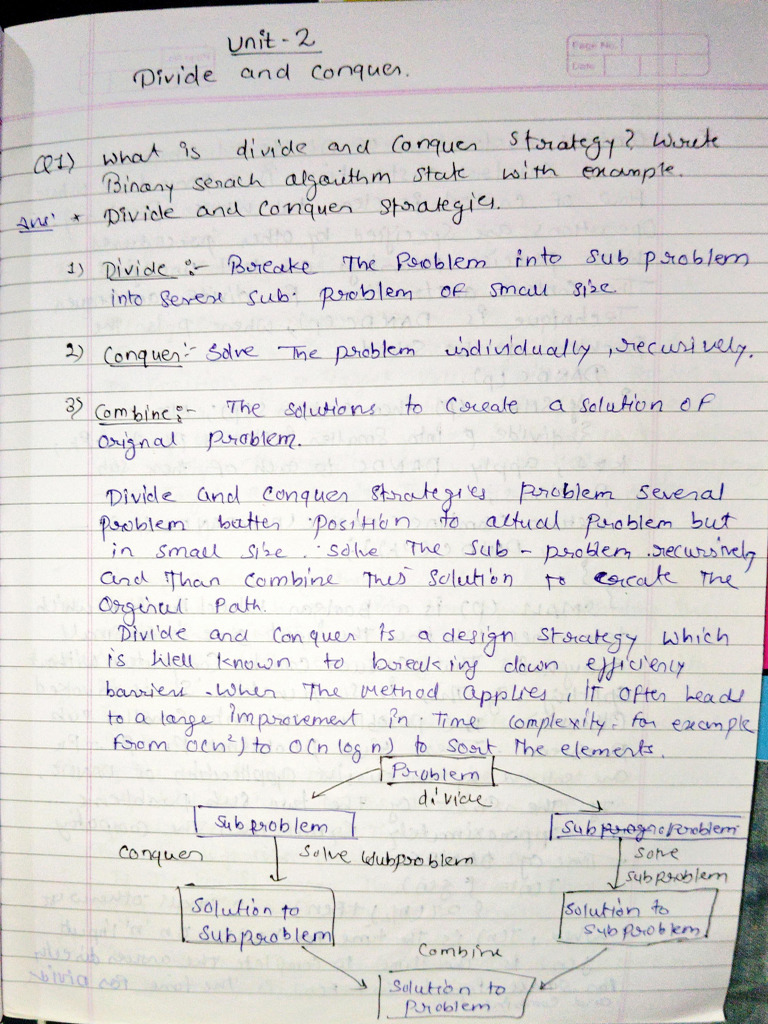 Unit - 2
PAGE NO.
Date
Divide and Conquer.
Q1) What is divide and Conquer Strategy? Write
Binary serach algorithm state with example.
Ans: * Divide and Conquer Strategies.
1) Divide :- Breake The Problem into Sub problem
into severe Sub. Problem of small size
2) Conquer :- Solve The problem individually, recursively.
3) Combine :- The solutions to Create a solution of
Orignal Problem.
Divide and Conquer Strategies Problem several
Problem batter position to altual Problem but
in small size. Solve The Sub - problem recursively
and Than Combine This Solution to create The
Orginal Path.
Divide and Conquer is a design Strategy which
is Well known to breaking down efficiency
barriers. When The Method Applies, It Often Leads
to a large Improvement in Time Complexity. for example
From O(n²) to O(n log n) to Sort The elements.
Problem
divide
Subproblem
Sub Problem
Conquer
Solve subproblem
Solve
Subproblem
Solution to
Subproblem
Solution to
Subproblem
Combine
Solution to
Problem